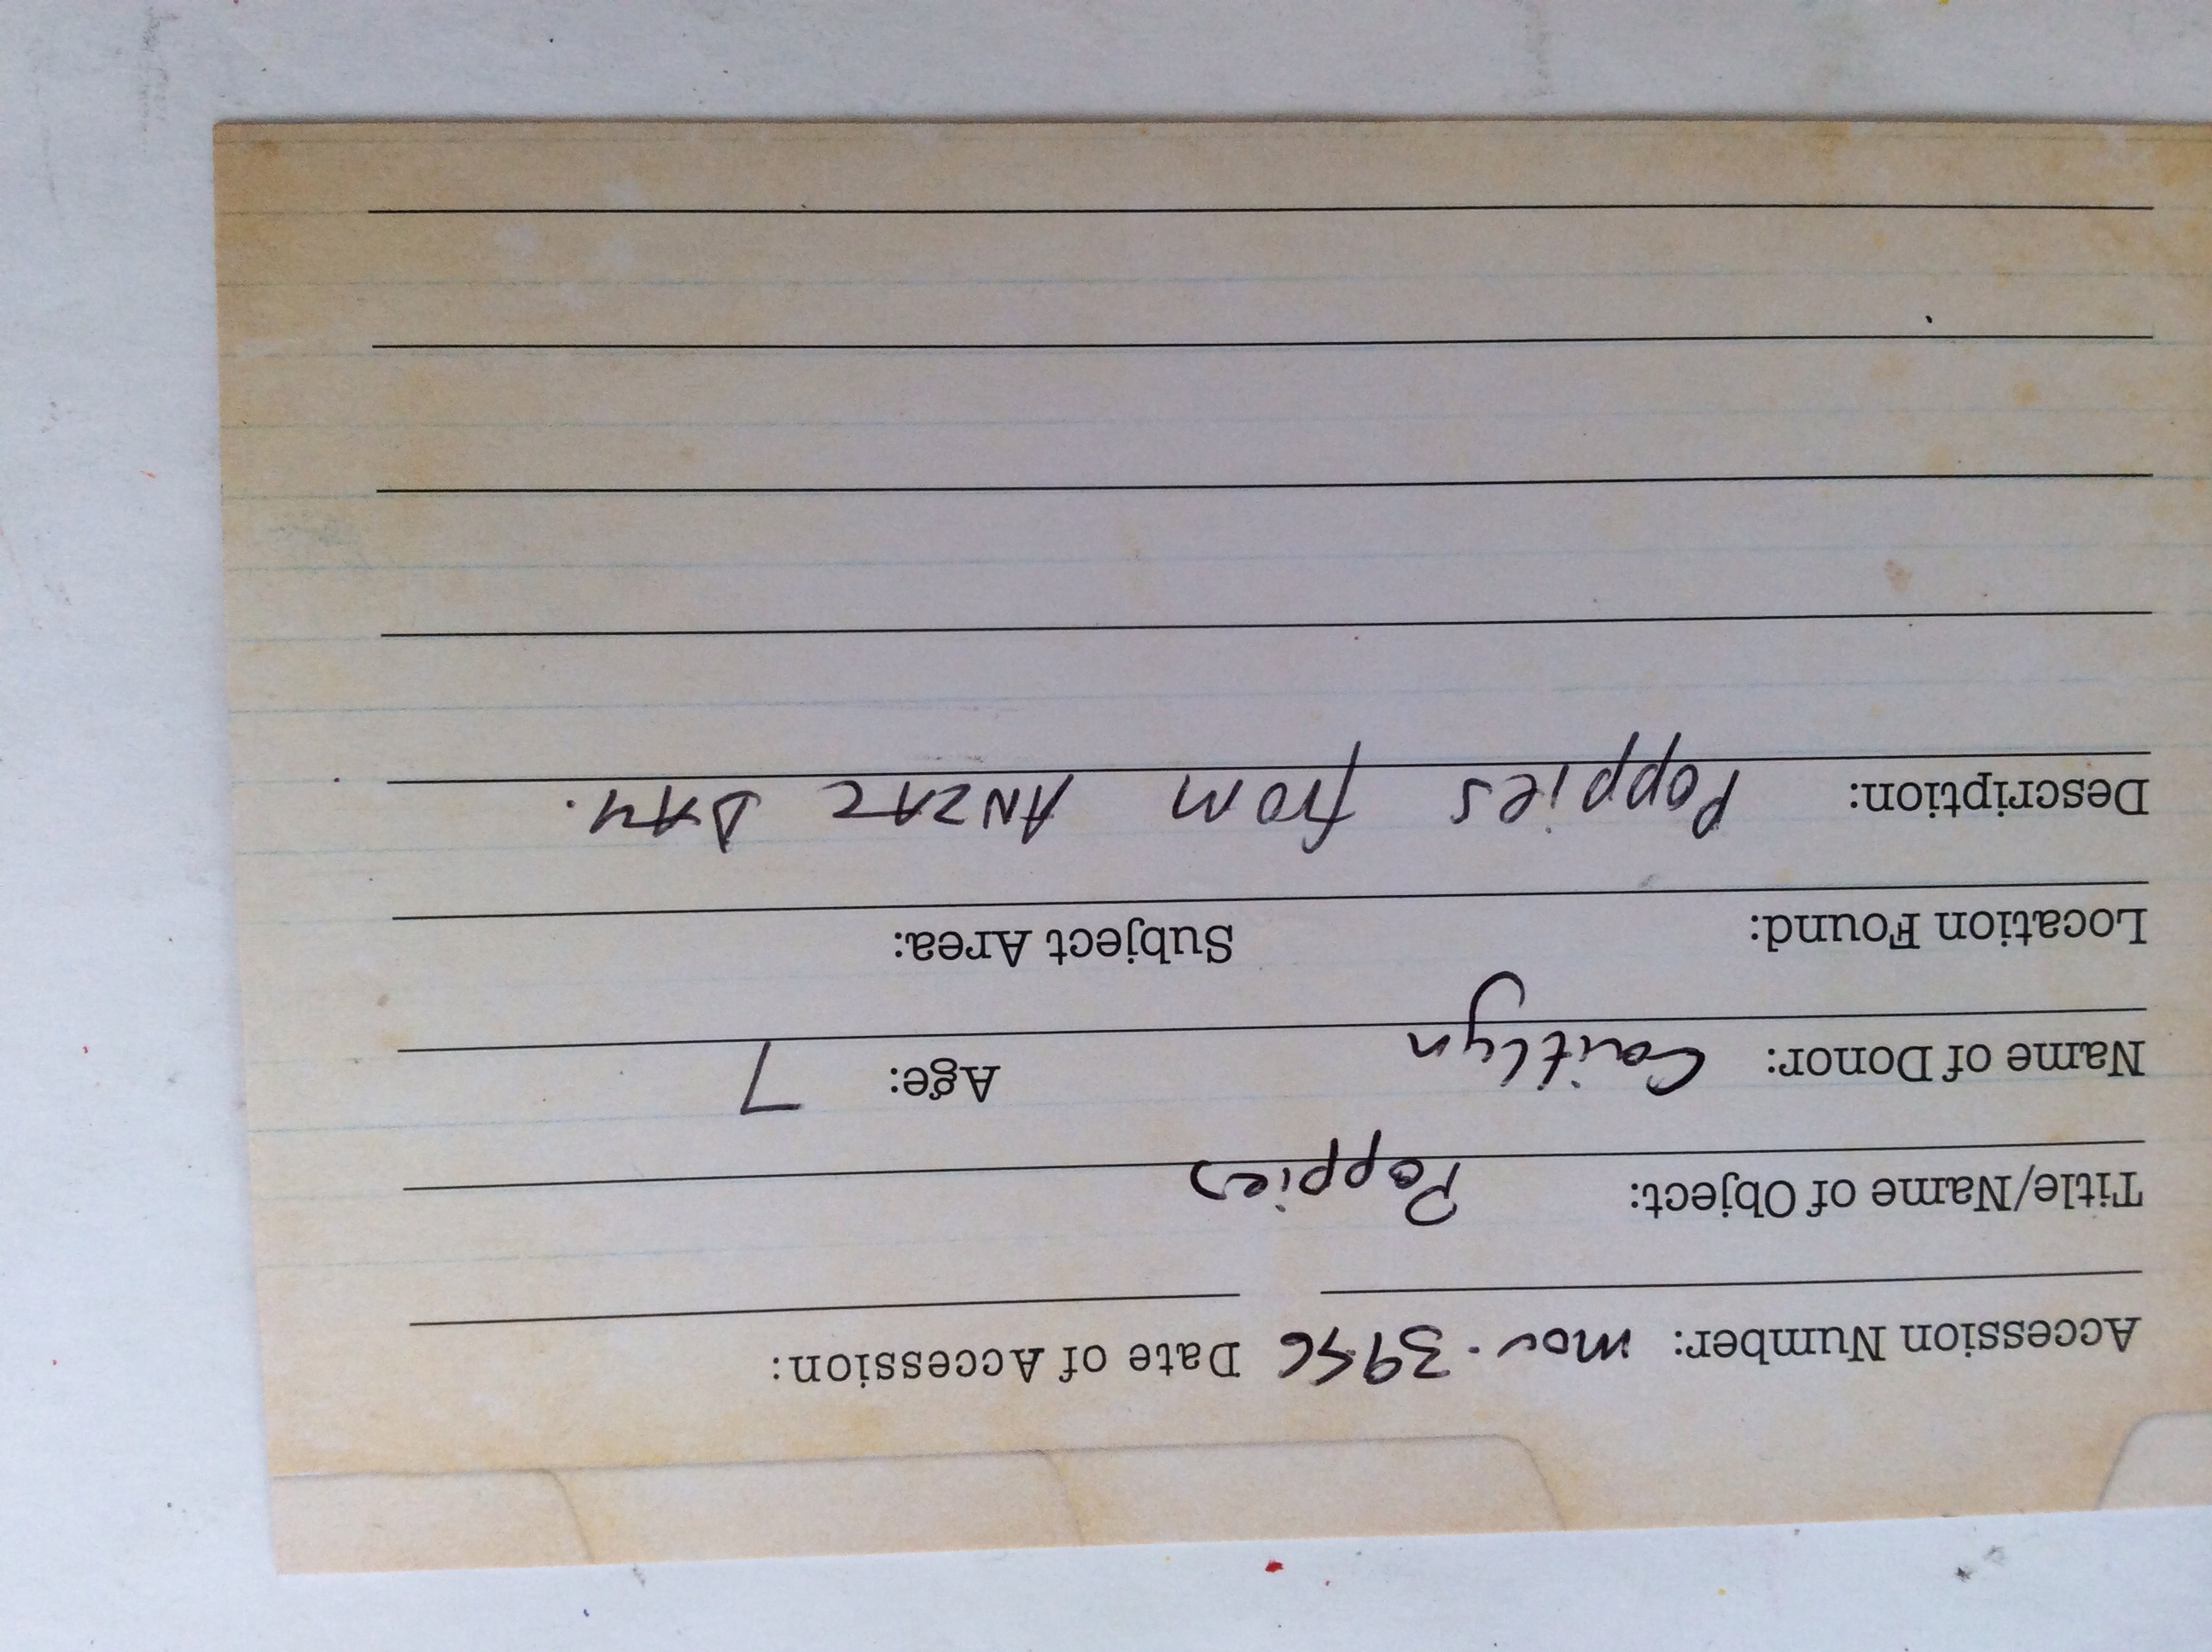 Accession Number: mov. 3956 Date of Accession:
Title/Name of Object: Poppies
Name of Donor: Caitlyn Age: 7
Location Found: Subject Area:
Description: Poppies from ANZAC DAY.